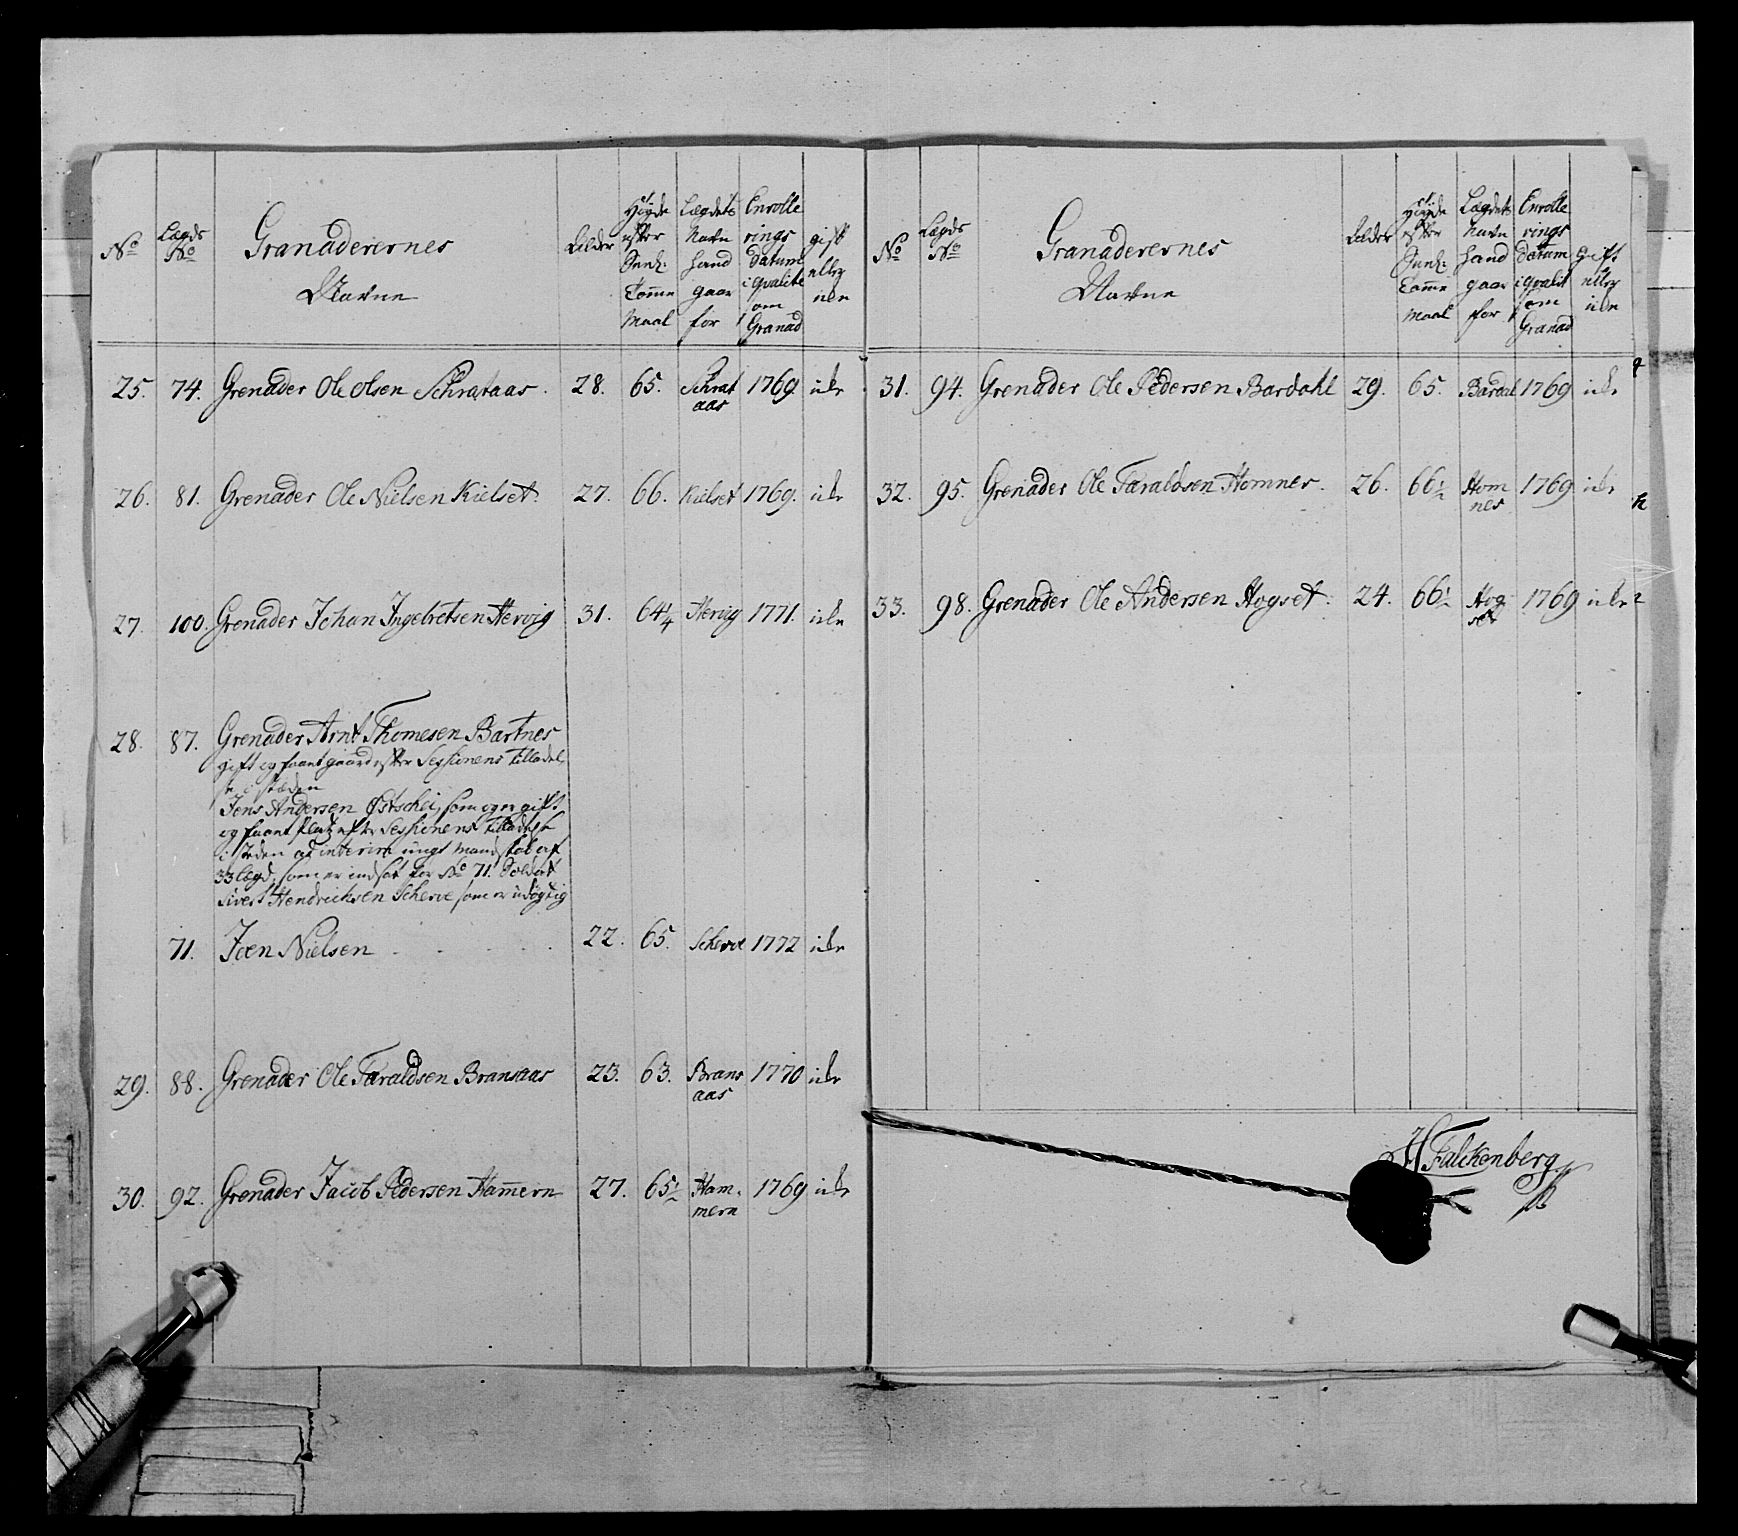 No
Lægds No
Granaderernes Nafne
Ælder
Høyde efter Siæl: Tomme Maal
Lægdets Nafn hand gaar for
Enrolle rings datum i qvalite som Granad
gift eller icke
25. 74. Grenader Ole Olsen Schrataas. 28. 65. Schrat aas 1769. icke
26. 81. Grenader Ole Nielsen Kielset. 27. 66. Kielset 1769. icke
27. 100. Grenader Johan Ingebretsen Hervig 31. 64¼ Hervig 1771. icke
28. 87. Grenader Arnt Thomesen Bartnes
gift og faaet gaard efter Sessionens tilladel,
se, i stæden
Jens Andersen Østschei, som og er gift
og faaet Platz efter Sessionens Tilladelse
i steden ad interim ungt Mandskab af
33 Lægd, som er indsat for No 71. Soldat
Sivert Hendricksen Scherve som er udøgtig
71. Joen Nielsen 22. 65. Scherve 1772 icke
29. 88. Grenader Ole Taraldsen Bransaas 23. 63. Brans aas 1770 icke
30. 92. Grenader Jacob Pedersen Ham̅ern 27. 65½ Ham, mern 1769 icke
No
Lægds No
Granaderernes Nafne
Ælder
Høyde efter Siæl: Tomme Maal
Lægdets Nafn hand gaar for
Enrolle rings datum i qvalit som Granad
gift eller icke
31. 94. Grenader Ole Pedersen Bardahl 29. 65. Bardal 1769 icke
32. 95. Grenader Ole Taraldsen Homnes. 26. 66½ Hom nes 1769 icke
33. 98. Grenader Ole Andersen Hogset. 24. 66½ Hog set 1769 icke
H Falckenberg